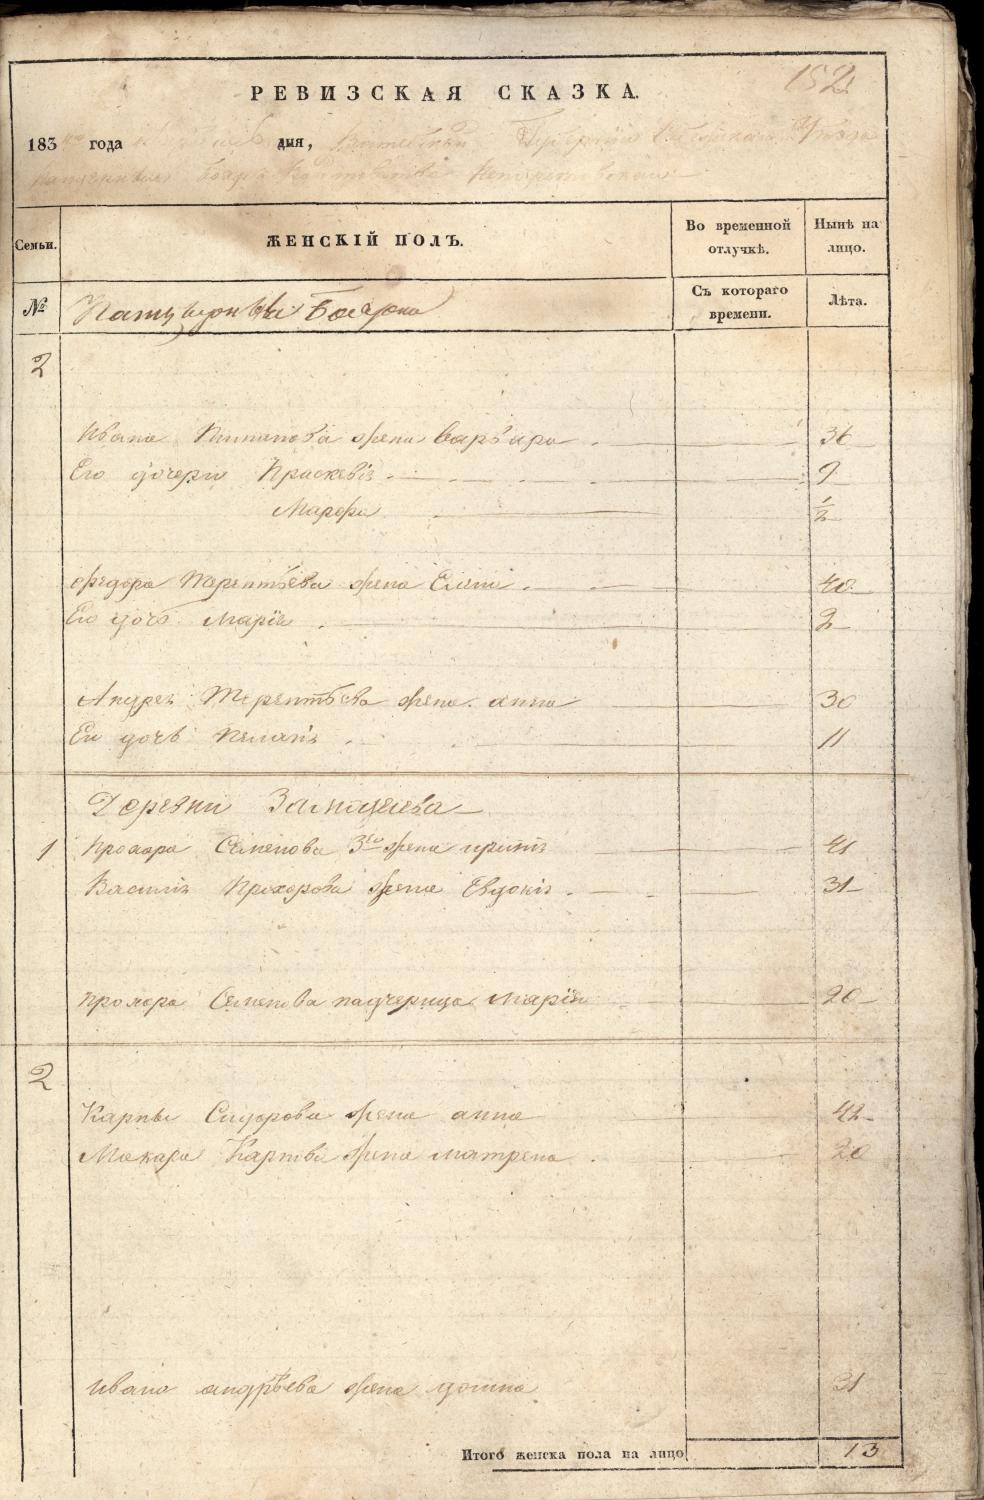 152
РЕВИЗСКАЯ СКАЗКА.
183 года дня, Витебской Губернии Уезда
Семьи. ЖЕНСКІЙ ПОЛЪ. Во временной отлучкѣ. Нынѣ на лицо.
№ Съ котораго времени. Лѣта.
2
Ивана жена Варвара 36
Его дочери Праскевія 9
Марфа 1/2
Федора Терентьева жена Елена 40
Его дочь Марія 2
Андрея Терентьева жена анна 30
Ей дочь 11
Деревни
1 Прохора Семенова 3го жена 41
Василія Прохорова жена Евдокія 31
Прохора Семенова падчерица Марія 20
2
Карпы Сидорова жена анна 42
Макара Карпова жена матрена 20
Ивана андрѣева жена домна 31
Итого женска пола на лицо 13